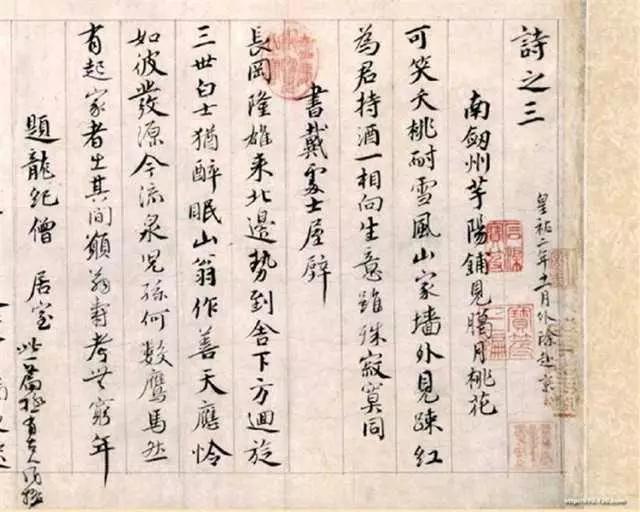 詩之三
皇祐二年十一月外除赴京
南劔州芋陽鋪見臘月桃花
可笑夭桃耐雪風山家墻外見疎紅
為君持酒一相向生意雖殊寂寞同
書戴處士屋壁
長岡隆雄來北邊勢到舍下方迴旋
三世白士猶醉眠山翁作善天應怜
如彼發源今流泉兒孫何數鷹馬然
有起家者出其間願翁壽考無窮年
題龍紀僧居室
此一篇極有古人風格